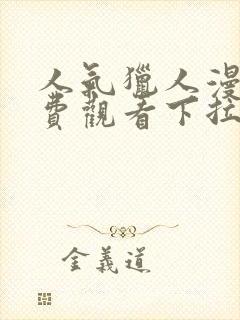 人氣獵人漫
費觀看下拉
金義道